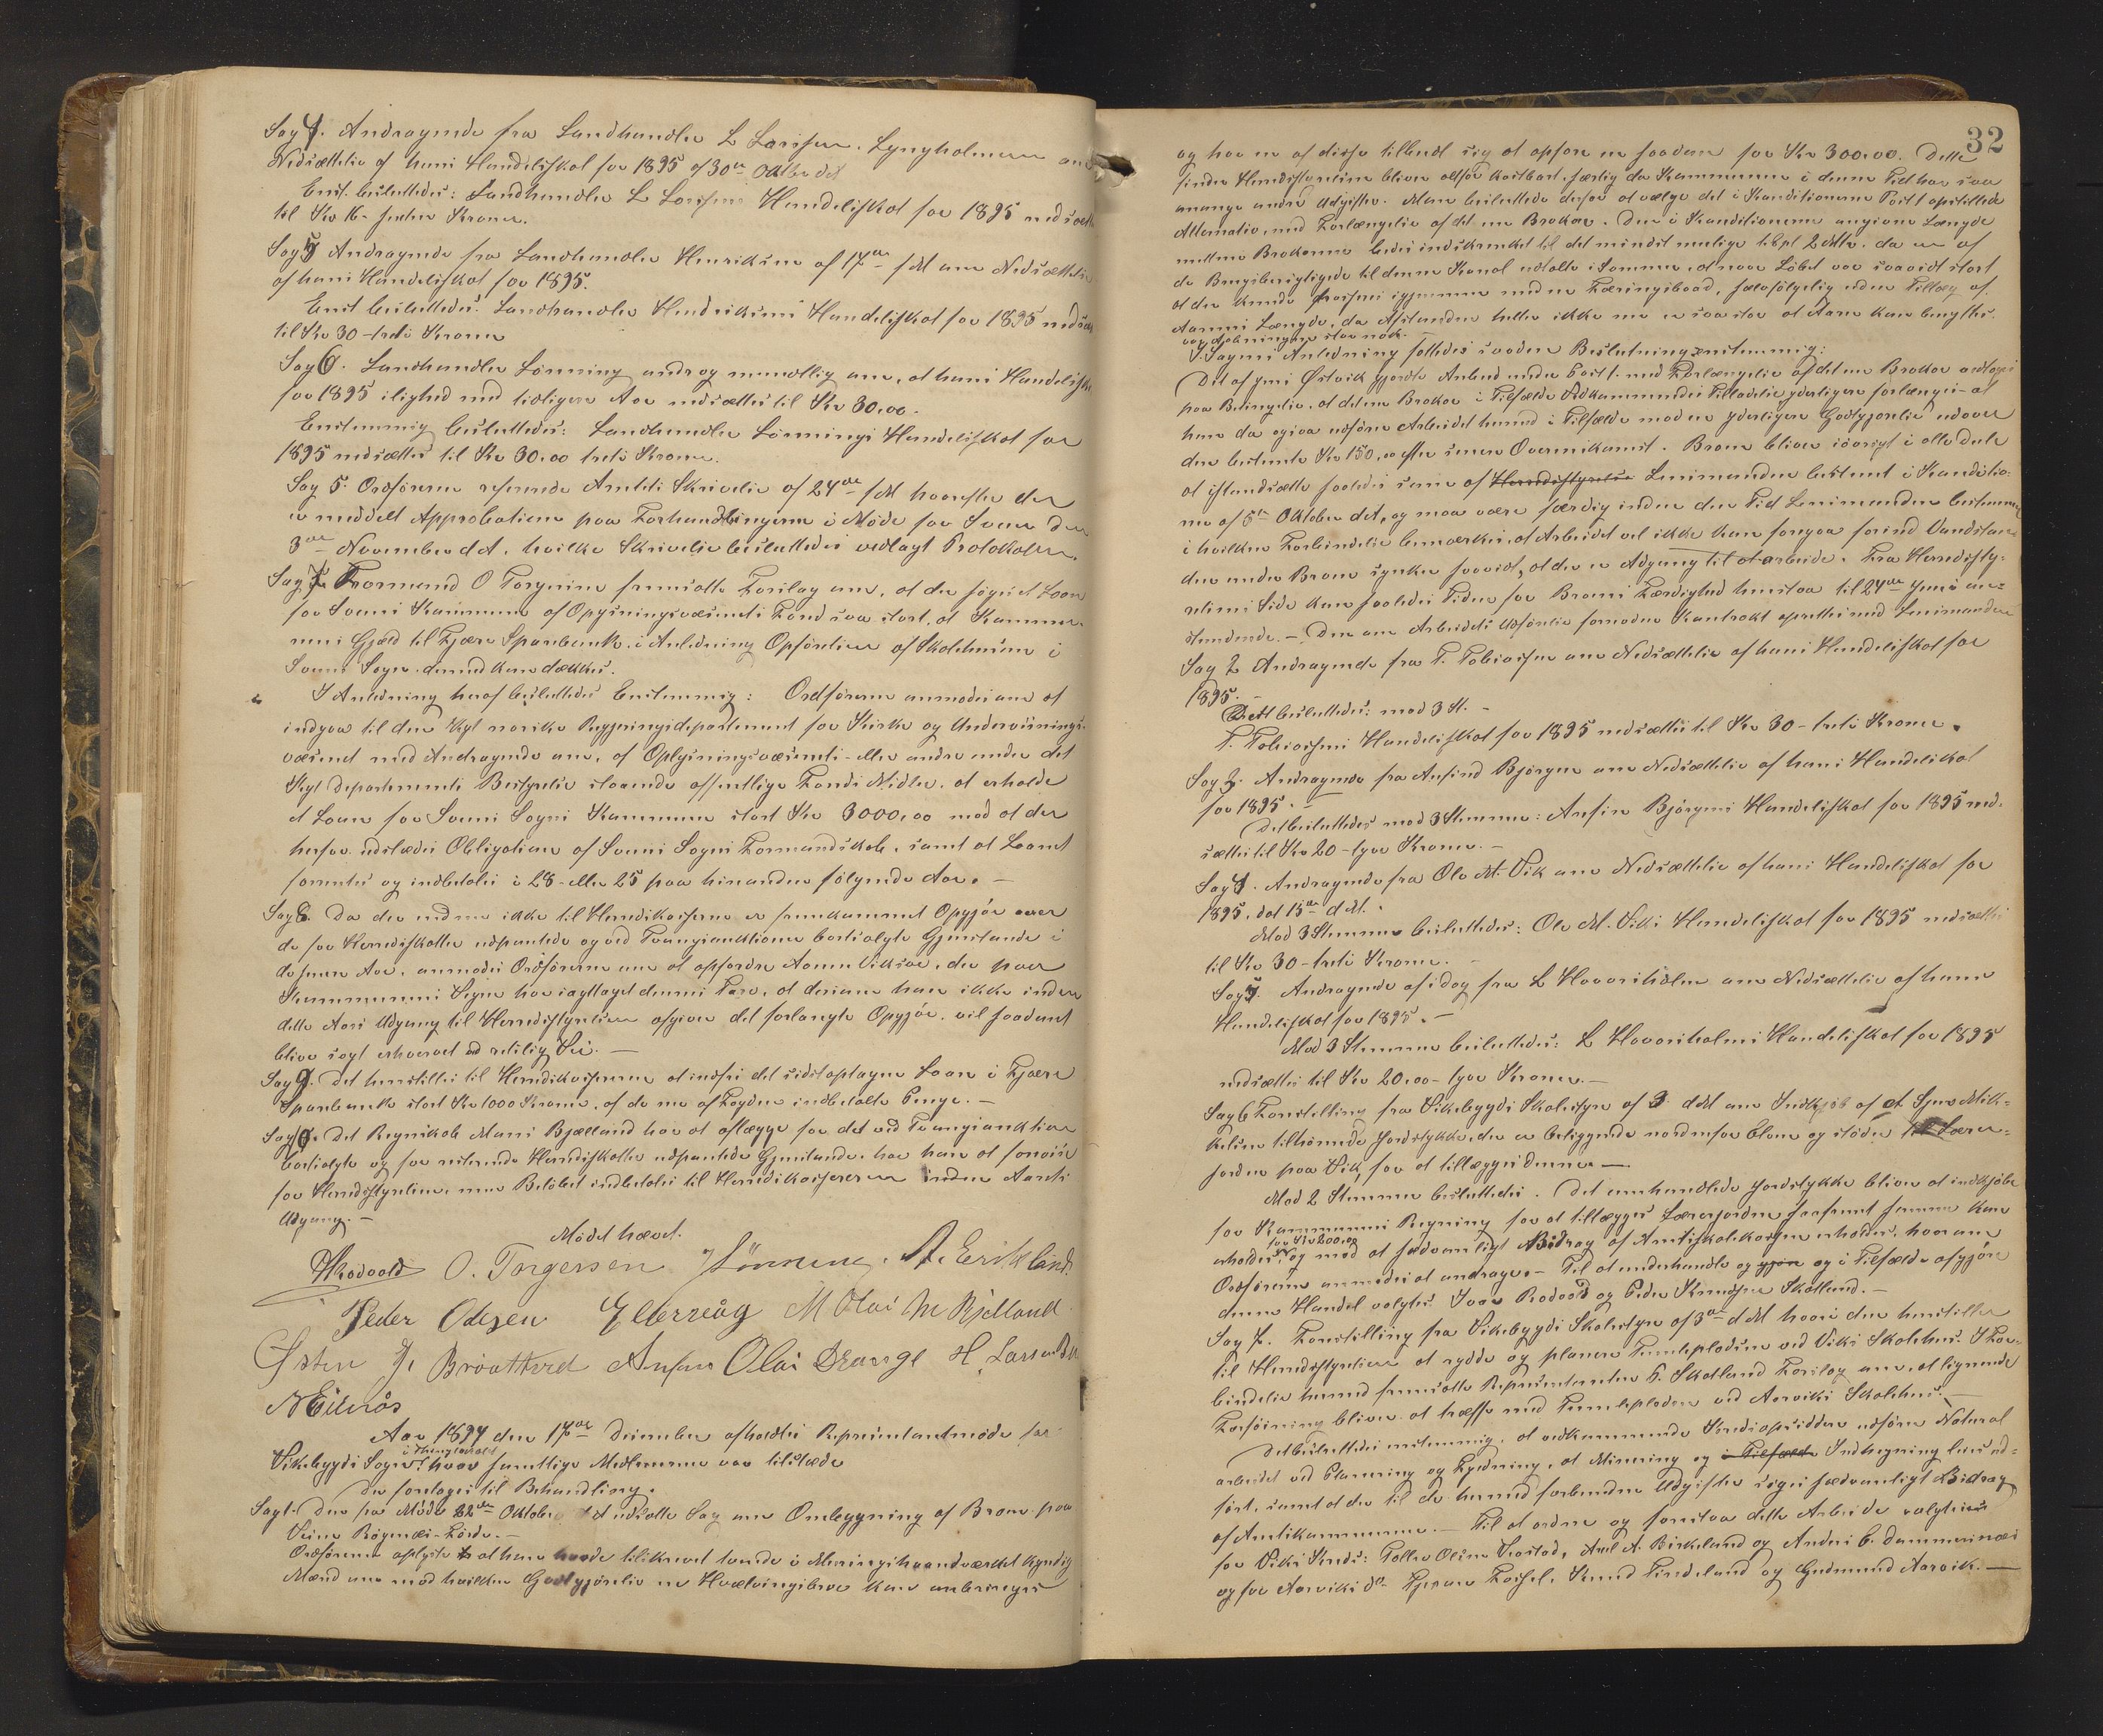 Sag 4. Andragende fra Landhandler L Larsen. Lyngholmen om
Nedsættelse af hans Handelsskat for 1895 af 30te Oktober dA
Enst. besluttedes: Landhandler L Larsens Handelsskat for 1895 nedsættes
til Kr 16 - sexten Kroner.
Sag 5 Andragende fra Landhandler Henriksen af 17de f M om Nedsættelse
af hans Handelsskat for 1895.
Enst besluttedes: Landhandler Hendriksens Handelsskat for 1895 nedsættes
til Kr 30 - treti Kroner
Sag 6. Landhandler Lönning androg mundtlig om, at hans Handelsskat
for 1895 ilighed med tidligere Aar nedsættes til Kr 30,00.
Enstemmig besluttedes: Landhandler Lönnings Handelsskat for
1895 nedsættes til Kr 30,00 treti Kroner.
Sag 5. Ordföreren refererede Amtets Skrivelse af 24de f M hvorefter der
er meddelt Approbation paa Forhandlingerne i Möde for Sveen den
3die November dA. hvilke Skrivelse besluttedes vedlagt Protokolen.
Sag 7. Formand O Torgersen fremsatte Forslag om, at der söges et Laan
for Sveens Kommune af Oplysningsvæsenets Fond saa stort, at Kommu-
nens Gjæld til Fjære Sparebank i Anledning Opförelsen af Skolehusene i
Sveen Sogn dermed kan dækkes.
I Anledning heraf besluttedes Enstemmig: Ordföreren anmodes om at
indgaa til den Kgl norske Regjeringsdepartement for Kirke og Undervisnings-
væsenet med Andragende om, af Oplysningsvæsenets - eller andre under det
Kgl Departements Bestyrelse staaende offentlige Fonds Midler, at erholde
et Laan for Sveens Sogns Kommune stort Kr 3000,00 mod at der
herfor udstædes Obligation af Sveens Sogns Formandskab, samt at Laanet
forrentes og indbetales i 28 - eller 25 paa hinanden fölgende Aar. -
Sag 8. Da der endnu ikke til Herredskasseren er fremkommet Opgjör over
de for Herredsskatter udpantede og ved Tvangsauktioner bortsolgte Gjenstande i
de senere Aar, anmodes Ordföreren om at opfordre Lensmand Viksöe, der paa
Kommunens Vegne har iagttaget dennes Tarv, at dersom han ikke inden
dette Aars Udgang til Herredsstyrelsen afgiver det forlangte Opgjör, vil saadant
blive sögt erhvervet ad retslig Vei. -
Sag 9. Det henstilles til Herredskasseren at indfri det sidst optagne Laan i Fjære
Sparebank stort Kr 1000 Kroner, af de nu af Fogden indbetalte Penge. -
Sag 10. Det Regnskab Mons Bjælland har at aflægge for det ved Tvangsauktion
bortsolgte og for resterende Herredsskatter udpantede Gjenstande, har han at forevise
for Herredsstyrelsen, men Belöbet indbetales til Herredskassereren inden Aarets
Udgang. -
Mödet hævet.
Rodvold O. Torgersen J Lönning. A. Erikland.
Peder Odesen E Ellervåg M Olai M Bjelland
Östen J. Bråtthvet Anfin Olai Drange H. Larsen
N Eilerås
Aar 1894 den 17de December afholdtes Repræsentantmöde for
Vikebygds Sogn i Thinglokalet hvor samtlige Medlemmer var tilstæde
Der foretoges til Behandling.
Sag 1. Den fra Möde 22de Oktober dA udsatte Sag om Omlægning af Broen paa
Veien Rögenæs - Förde. -
Ordföreren oplyste at han havde tilskrevet tvende i Muringshaandværket kyndige
Mænd om mod hvilken Godtgjörelse en Hvælvingsbro kan anbringes
32
og har en af disse tilbudt sig at opföre en saadan for Kr 300,00. Dette
finder Herredsstyrelsen bliver altfor kostbart, særlig da Kommunen i denne Tid har saa
mange andre Udgifter. Man besluttede derfor at vælge det i Konditionerne Post 1 opstillede
Alternativ, med Forlængelse af det ene Brokar. Den i Konditionerne angivne Længde
mellem Brokarene bedes indskrænket til det mindst mulige til pl 2 Mtr. da en af
de Brugsberettigede til denne Kanal udtalte i Sommer, at naar Löbet var saavidt stort
at der kunde passeres igjennem med en Færingsbaad, selvfölgelig uden Tillæg af
Aarens Længde, da Afstanden heller ikke nu er saa stor at Aarer kan benyttes
var Aabningen stor nok.
I Sagens Anledning fattedes saadan Beslutning enstemmig:
Det af Jens Östvik gjorte Anbud under Post 1 med Forlængelse af det ene Brokar antages
paa Betingelse, at det ene Brokar i Tilfælde Vedkommendes Tilladelse yderligere forlænges - at
han da ogsaa udförer Arbeidet hermed i Tilfælde mod en yderligere Godtgjörelse udover
den bestemte Kr 150,00 efter senere Overenskomst. Broen bliver iövrigt i alle Dele
at istandsætte saaledes som af Lensmanden bestemt i Konditio-
ner af 5te Oktober dA, og maa være færdig inden den Tid Lensmanden bestemmer
i hvilken Forbindelse bemærkes, at Arbeidet vel ikke kan foregaa forend Vandstan-
den under Broen synker saavidt, at der er Adgang til at arbeide. Fra Herredsty-
relsens Side kan saaledes Tiden for Broens Færdighed henstaa til 24de Juni an-
stundende. - Den om Arbeidets Udförelse fornödne Kontrakt oprettes med Lensmanden
Sag 2 Andragende fra T. Tobiassen om Nedsættelse af hans Handelsskat for
1895. -
Det besluttedes: mod 3 St. -
T. Tobiassens Handelsskat for 1895 nedsættes til Kr 30 - treti Kroner.
Sag 3. Andragende fra Anfind Björgen om Nedsættelse af hans Handelskat
for 1895. -
Det besluttedes mod 3 Stemmer: Anfin Björgens Handelsskat for 1895 ned-
sættes til Kr 20 - tyve Kroner. -
Sag 4. Andragende fra Ole M. Vik om Nedsættelse af hans Handelsskat for
1895, dat 15de d M.
Mod 3 Stemmer besluttedes: Ole M. Viks Handelsskat for 1895 nedsættes
til Kr 30 - treti Kroner. -
Sag 5. Andragende af idag fra L Hovorsholm om Nedsættelse af hans
Handelsskat for 1895. -
Mod 3 Stemmer besluttedes: L Hovorsholms Handelsskat for 1895
nedsættes til Kr 20,00 - tyve Kroner. -
Sag 6 Forestilling fra Vikebygds Skolestyre af 3 d M om Indkjöb af et Sjur Mik-
kelsen tilhörende Jordstykke, der er beliggende nordenfor Elven og stöder til Lærer-
jorden paa Vik, for at tillægges denne. -
Mod 2 Stemmer besluttedes. Det omhandlede Jordstykke bliver at indkjöbe
for Kommunens Regning for at tillægges Lærerjorden saafremt samme kan
erholdes for Kr 200,00 og mod at sædvanligt Bidrag af Amtsskolekassen erholdes, hvorom
Ordföreren anmodes at andrage. - Til at underhandle og gjöre og i Tilfælde afgjöre
denne Handel valgtes Ivar Rodvold og Peder Knudsen Skotland. -
Sag 7. Forestilling fra Vikebygds Skolestyre af 3die d M hvori den henstiller
til Herredsstyrelsen at rydde og planere Tomtepladsen ved Viks Skolehus. I For-
bindelse hermed fremsatte Repræsentanten P. Skotland Forslag om, at lignende
Forföining bliver at træffe med Tomtepladsen ved Aarviks Skolehus. -
Det besluttedes enstemmig, at vedkommende Kredsopsiddere udförer Natural
arbeidet ved Planering og Rydning, at Minering og i Tilfælde Indhegning bliver ud-
fört, samt at der til de hermed forbundne Udgifter söges sædvanligt Bidrag
af Amtskommunen. - Til at ordne og forestaa dette Arbeide valgtes
for Viks Kreds: Tollev Olsen Tveitad, Amt A. Birkeland og Anders C. Dommersnæs
og for Aarviks do Tjeran Fosse, Knud Tindeland og Gudmund Aarvik. -